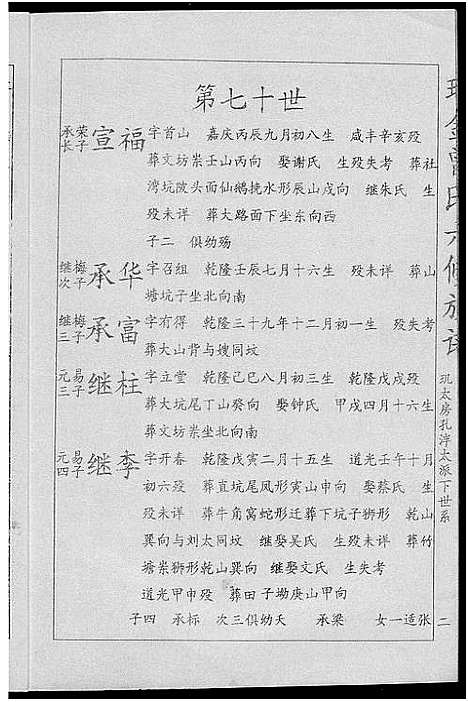 第七十世
承荣长子 宣福 字首山 嘉庆丙辰九月初八生 咸丰辛亥殁
葬文坊崇壬山丙向 娶谢氏 生殁失考 葬社
湾坑陂头面仙鹅挽水形辰山戌向 继朱氏 生
殁未详 葬大路面下坐东向西
子二 俱幼殇
继梅次子 承华 字召组 乾隆壬辰七月十六生 殁未详 葬山
塘坑子坐北向南
继梅三子 承富 字有得 乾隆三十九年十二月初一生 殁失考
葬大山背与嫂同坟
元易三子 继柱 字立堂 乾隆己巳八月初三生 乾隆戊戌殁
葬大坑尾丁山癸向 娶钟氏 甲戌四月十六生
葬文坊崇坐北向南
元易四子 继李 字开春 乾隆戊寅二月十五生 道光壬午十月
初六殁 葬直坑尾凤形寅山申向 娶蔡氏 生
殁未详 葬牛角窝蛇形迁葬下坑子狮形 乾山
巽向与刘太同坟 继娶吴氏 生殁未详 葬竹
塘崇狮形乾山巽向 继娶文氏 生失考
道光甲申殁 葬田子坳庚山甲向
子四 标 承 次三俱幼夭 承梁 女一适张
金曾氏六修族谱
玑太房孔淳太派下世系
二